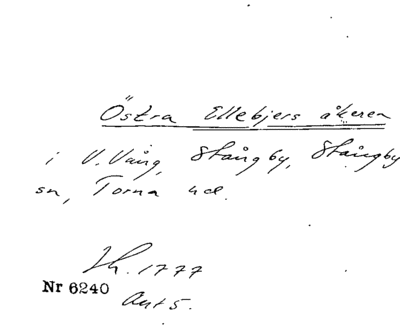 Östra Ellebjers åkeren
i V. Vång, Stångby, Stångby
sn, Torna hd.
Lh. 1777
Nr 6240
Akt 5.